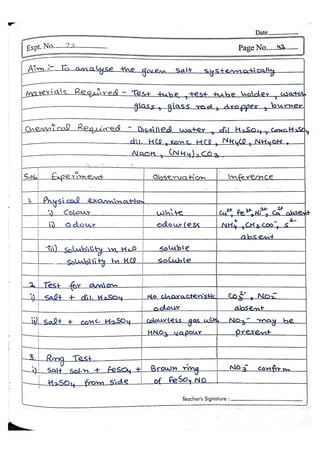 Date
Expt. No. 23
Page No. 42
Aim :- To analyse the given salt systematically
Materials Required - Test tube, test tube holder, watch
glass, glass rod, dropper, burner
Chemical Required - Distilled water, dil H₂SO₄, Conc H₂SO₄
dil. HCl, conc HCl, NH₄Cl, NH₄OH,
NaOH, (NH₄)₂CO₃
S.No Experiment Observation Inference
1. Physical examination
i) Colour White Cu²⁺, Fe³⁺, Ni²⁺, Co²⁺ absent
ii) Odour odourless NH₄⁺, CH₃COO⁻, S²⁻
absent
iii) Solubility in H₂O soluble
Solubility in HCl soluble
2. Test for anion
i) Salt + dil. H₂SO₄ No characteristic CO₃²⁻, NO₂⁻
odour absent
ii) Salt + conc. H₂SO₄ colourless gas with NO₃⁻ may be
HNO₃ vapour present
3. Ring Test
i) Salt soln + FeSO₄ + Brown ring NO₃⁻ confirm
H₂SO₄ from side of FeSO₄ NO
Teacher's Signature :